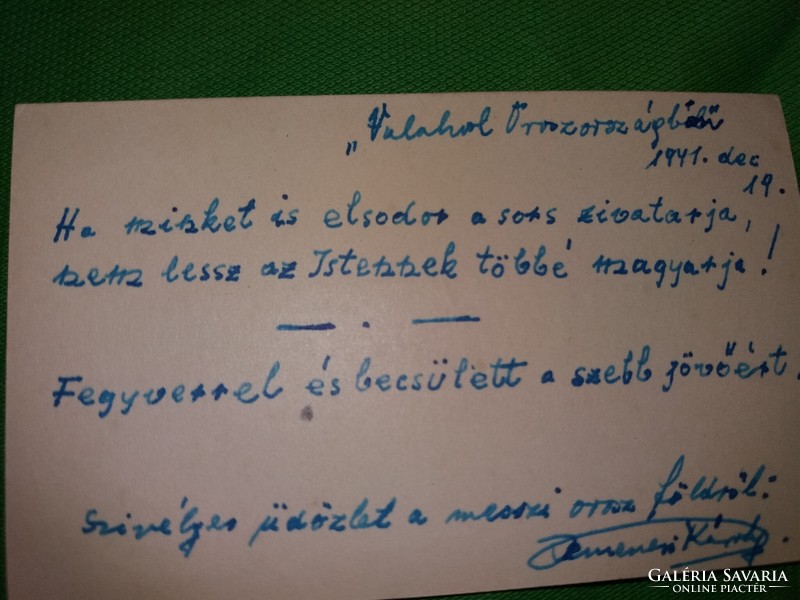 „Valahol Oroszországból"
1941. dec
19.
Ha minket is elsodor a sors zivatarja,
nem lessz az Istennek többé magyarja!
— . —
Fegyverrel és becsülett a szebb jövőért.
Szivélyes üdözlet a messzi orosz földről:
Károly.
GALÉRIA SAVARIA
ONLINE PIACTÉR